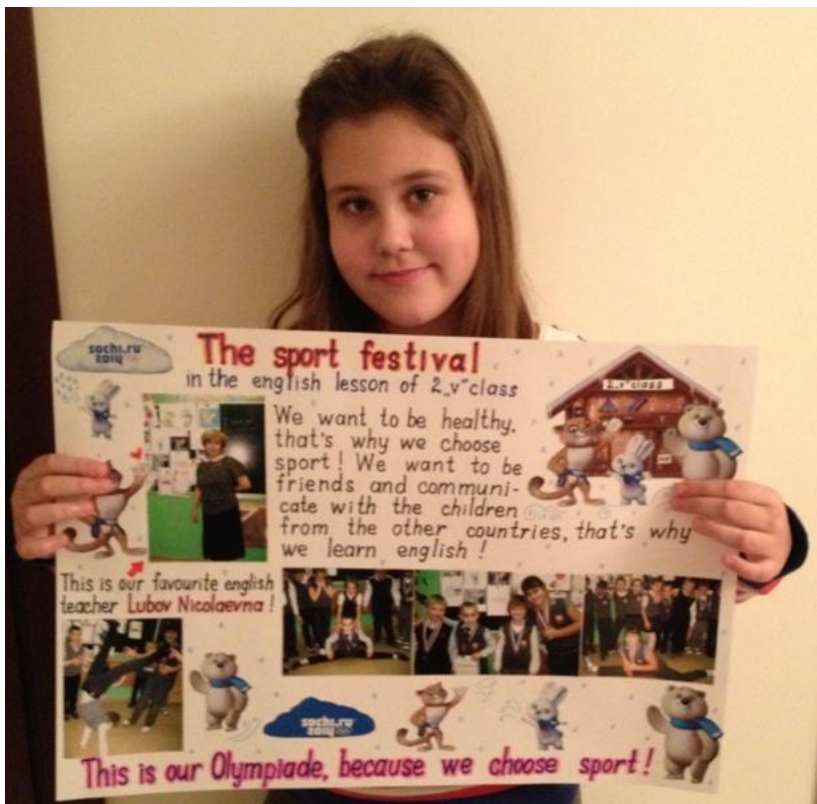 sochi.ru
2014
The sport festival
in the english lesson of 2„v” class
2„v” class
We want to be healthy,
that's why we choose
sport! We want to be
friends and communi-
cate with the children
from the other countries, that's why
we learn english !
This is our favourite english
teacher Lubov Nicolaevna !
sochi.ru
2014
This is our Olympiade, because we choose sport !